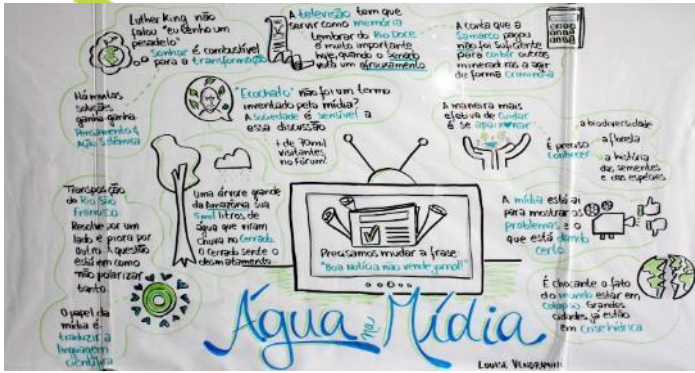 Luther King não
falou "eu tenho um
pesadelo"
sonhar é combustível
para a transformação
A televisão tem que
servir como memória
Lembrar do Rio Doce
é muito importante
hoje, quando o Senado
vota um afrouxamento
A conta que a
Samarco pagou
não foi suficiente
para coibir outras
mineradoras a agir
de forma criminosa
Há muitas
soluções
ganha-ganha
Pensamento e
Ação Sistêmica
"Ecochato" não foi um termo
inventado pela mídia?
A sociedade é sensível a
essa discussão
+ de 70mil
visitantes
no Fórum!
A maneira mais
efetiva de cuidar
é se apaixonar
É preciso
conhecer
a biodiversidade
a floresta
a história
das sementes
e das espécies
Transposição
do Rio São
Francisco
Resolve por um
lado e piora por
outro. A questão
está em como
não polarizar
tanto
Uma árvore grande
da Amazônia sua
5 mil litros de
água que viram
chuva no Cerrado.
O Cerrado sente o
desmatamento
Precisamos mudar a frase
"Boa Notícia não vende jornal!"
A mídia está aí
para mostrar os
problemas e o
que está dando
certo
É chocante o fato
do mundo estar em
colapso. Grandes
cidades já estão
em crise hídrica
O papel da
mídia é
traduzir a
linguagem
científica
Água na Mídia
LOUISE VENDRAMINI